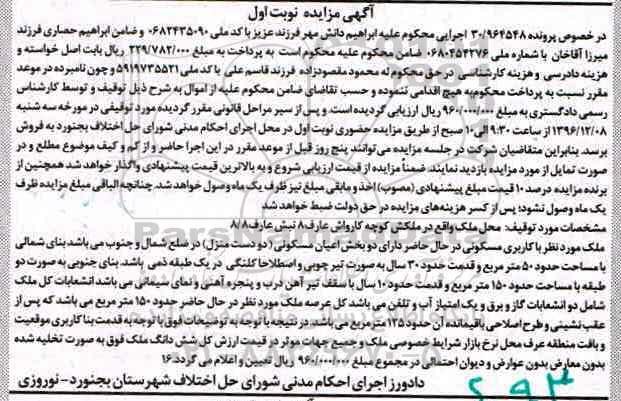 آگهی مزایده نوبت اول
در خصوص پرونده ۳۰/۹۶۴۵۴۸ اجرایی محکوم علیه ابراهیم دانش مهر فرزند عزیز با کد ملی ۰۶۸۲۴۳۵۰۹۰ و ضامن ابراهیم حصاری فرزند
میرزا آقاخان با شماره ملی ۰۶۸۰۴۵۴۲۷۶ ضامن محکوم علیه محکوم است به پرداخت به مبلغ ۲۲۹/۷۸۲/۰۰۰ ریال بابت اصل خواسته و
هزینه دادرسی و هزینه کارشناسی در حق محکوم له محمود مقصودزاده فرزند قاسم علی با کد ملی ۵۹۱۹۷۳۵۵۲۱ و چون نامبرده در موعد
مقرر نسبت به پرداخت محکوم به هیچ اقدامی ننموده و حسب تقاضای ضامن محکوم علیه از اموال به شرح ذیل توقیف و توسط کارشناس
رسمی دادگستری به مبلغ ۹۶۰/۰۰۰/۰۰۰ ریال ارزیابی گردیده است. و پس از سیر مراحل قانونی مقرر گردیده مورد توقیفی در مورخه سه شنبه
۱۳۹۶/۱۲/۰۸ از ساعت ۹:۳۰ الی ۱۰ صبح از طریق مزایده حضوری نوبت اول در محل اجرای احکام مدنی شورای حل اختلاف بجنورد به فروش
برسد. بنابراین متقاضیان شرکت در جلسه مزایده می‌توانند پنج روز قبل از موعد مقرر در این اجرا حاضر و از کم و کیف موضوع مطلع و در
صورت تمایل از مورد مزایده بازدید نمایند. ضمناً مزایده از قیمت ارزیابی شروع و به بالاترین قیمت پیشنهادی واگذار خواهد شد همچنین از
برنده مزایده در صد ۱۰ قیمت مبلغ پیشنهادی (مصوب) اخذ و مابقی مبلغ نیز ظرف یک ماه وصول خواهد شد. چنانچه الباقی مبلغ مزایده ظرف
یک ماه وصول نشود؛ پس از کسر هزینه‌های مزایده در حق دولت ضبط خواهد شد
مشخصات مورد توقیف: محل ملک واقع در ملکش کوچه کارواش عارف ۸ نبش عارف ۸/۸
ملک مورد نظر با کاربری مسکونی در حال حاضر دارای دو بخش اعیان مسکونی (دو دست منزل) در ضلع شمال و جنوب می باشد بنای شمالی
با مساحت حدود ۵۰ متر مربع و قدمت حدود ۳۰ سال به صورت تیر چوبی و اصطلاحا کلنگی در یک طبقه ذمی باشد. بنای جنوبی به صورت دو
طبقه با مساحت حدود ۱۵۰ متر مربع و قدمت حدود ۱۰ سال با سقف تیر آهن درب و پنجره آهنی و نمای سیمانی می باشد انشعابات کل ملک
شامل دو انشعابات گاز و برق و یک امتیاز آب و تلفن می باشد. کل عرصه ملک مورد نظر در حال حاضر حدود ۱۵۰ متر مربع می باشد که پس از
عقب نشینی و طرح اصلاحی باقیمانده آن حدود ۱۲۵ متر مربع می باشد. در نتیجه با توجه به توضیحات فوق با توجه به قدمت بنا کاربری موقعیت
و بافت منطقه عرف محل نرخ بازار شرایط خصوصی ملک و جمیع جهات موثر در قیمت ارزش کل شش دانگ ملک فوق به صورت تخلیه شده
بدون معارض بدون عوارض و دیوان احتمالی در مجموع مبلغ ۹۶۰/۰۰۰/۰۰۰ ریال تعیین و اعلام می گردد. ۱۶
دادورز اجرای احکام مدنی شورای حل اختلاف شهرستان بجنورد - نوروزی